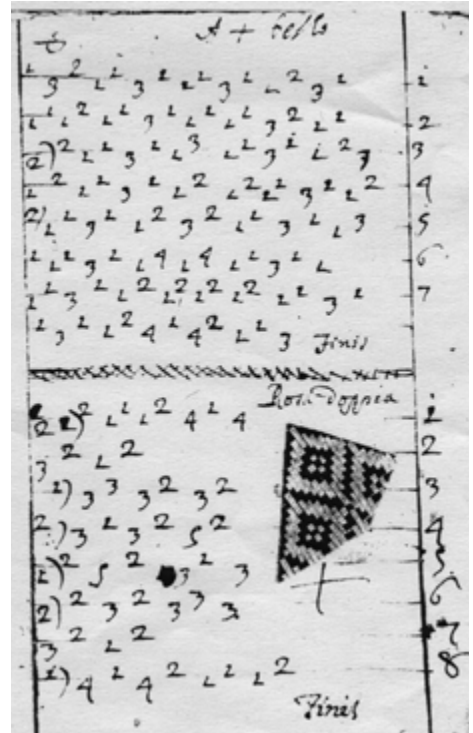 1 3 2 1 1 3 1 1 3 1 1 2 3 1 1
1 1 2 1 1 3 1 1 1 1 3 2 1 1 2
2) 2 1 1 3 1 1 3 1 1 3 1 1 2 3 3
1 2 1 1 3 1 1 2 1 2 2 3 1 1 2 4
2) 1 1 3 1 1 2 3 2 1 1 3 1 1 3 5
1 1 3 1 1 4 1 4 1 1 3 1 1 6
1 1 3 1 1 2 1 2 1 2 1 2 1 1 3 1 7
1 3 1 1 2 4 1 4 2 1 1 3 Finis
Rosa doppia
2) 2 1 1 2 4 1 4 1
3 2 1 2 2
2) 3 3 3 2 3 2 3
2) 3 1 3 2 5 2 4
2) 2 5 2 3 2 3 5
2) 2 3 2 3 3 3 6
3 2 1 2 7
2) 4 1 4 2 1 1 1 2 8
Finis